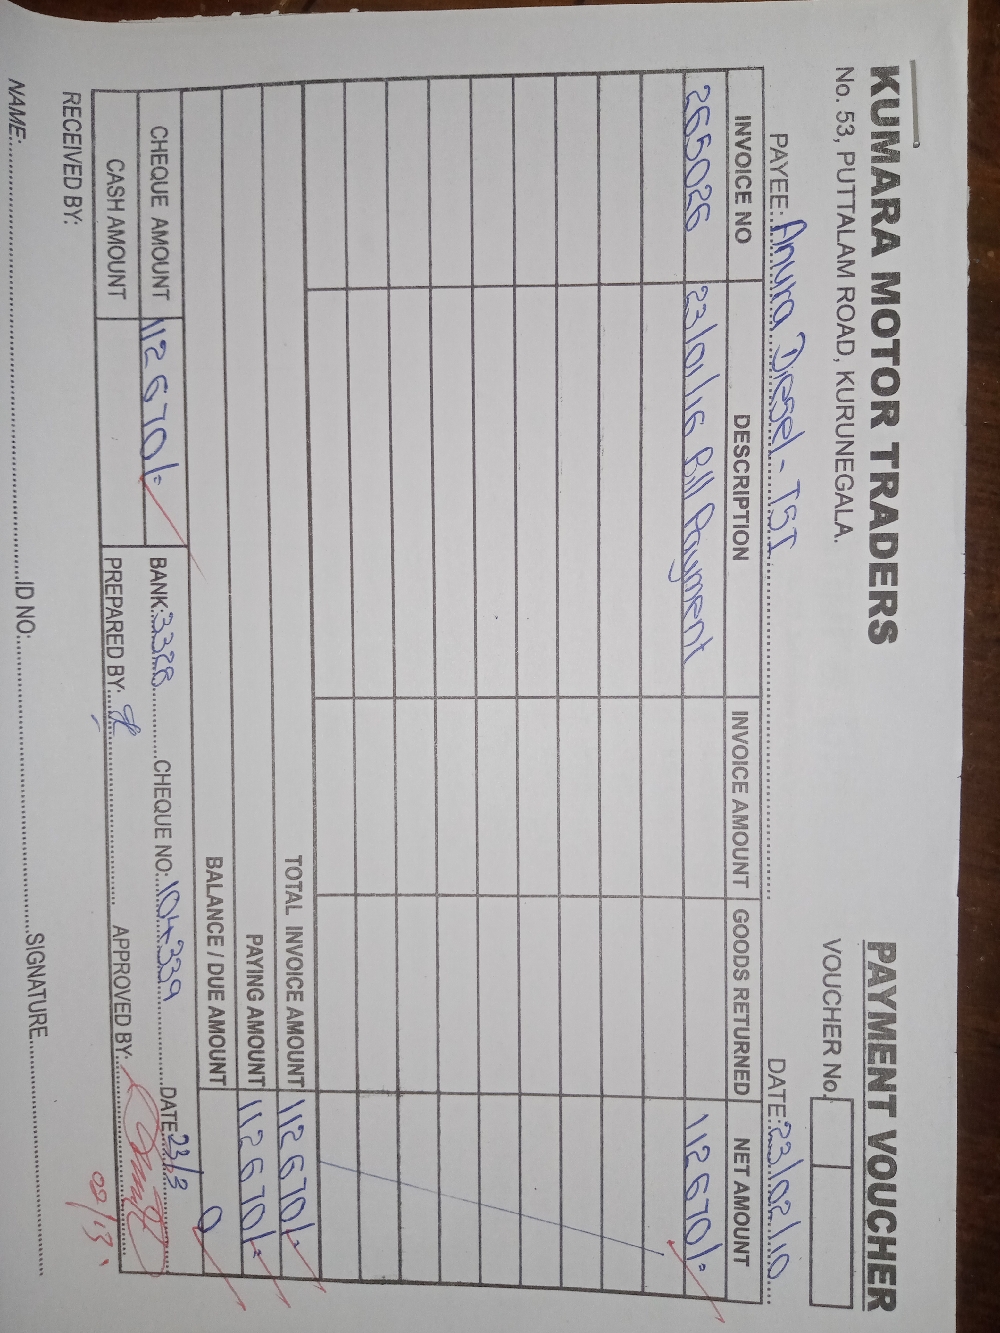 KUMARA MOTOR TRADERS
PAYMENT VOUCHER
No. 53, PUTTALAM ROAD, KURUNEGALA.
VOUCHER No.
PAYEE: Anura Diesel - TST
DATE: 23/02/10
INVOICE NO DESCRIPTION INVOICE AMOUNT GOODS RETURNED NET AMOUNT
265026 23/01/16 Bill Payment 112670/-
TOTAL INVOICE AMOUNT 112670/-
PAYING AMOUNT 112670/-
BALANCE / DUE AMOUNT 0
CHEQUE AMOUNT 112670/- BANK: 3328 CHEQUE NO: 104339 DATE 23/3
CASH AMOUNT PREPARED BY: APPROVED BY:
02/13
RECEIVED BY:
NAME: ID NO: SIGNATURE